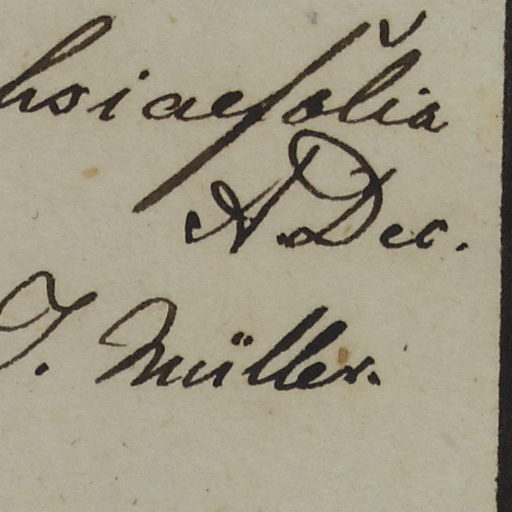 hsiaefolia
A. Dec.
J. Müller.